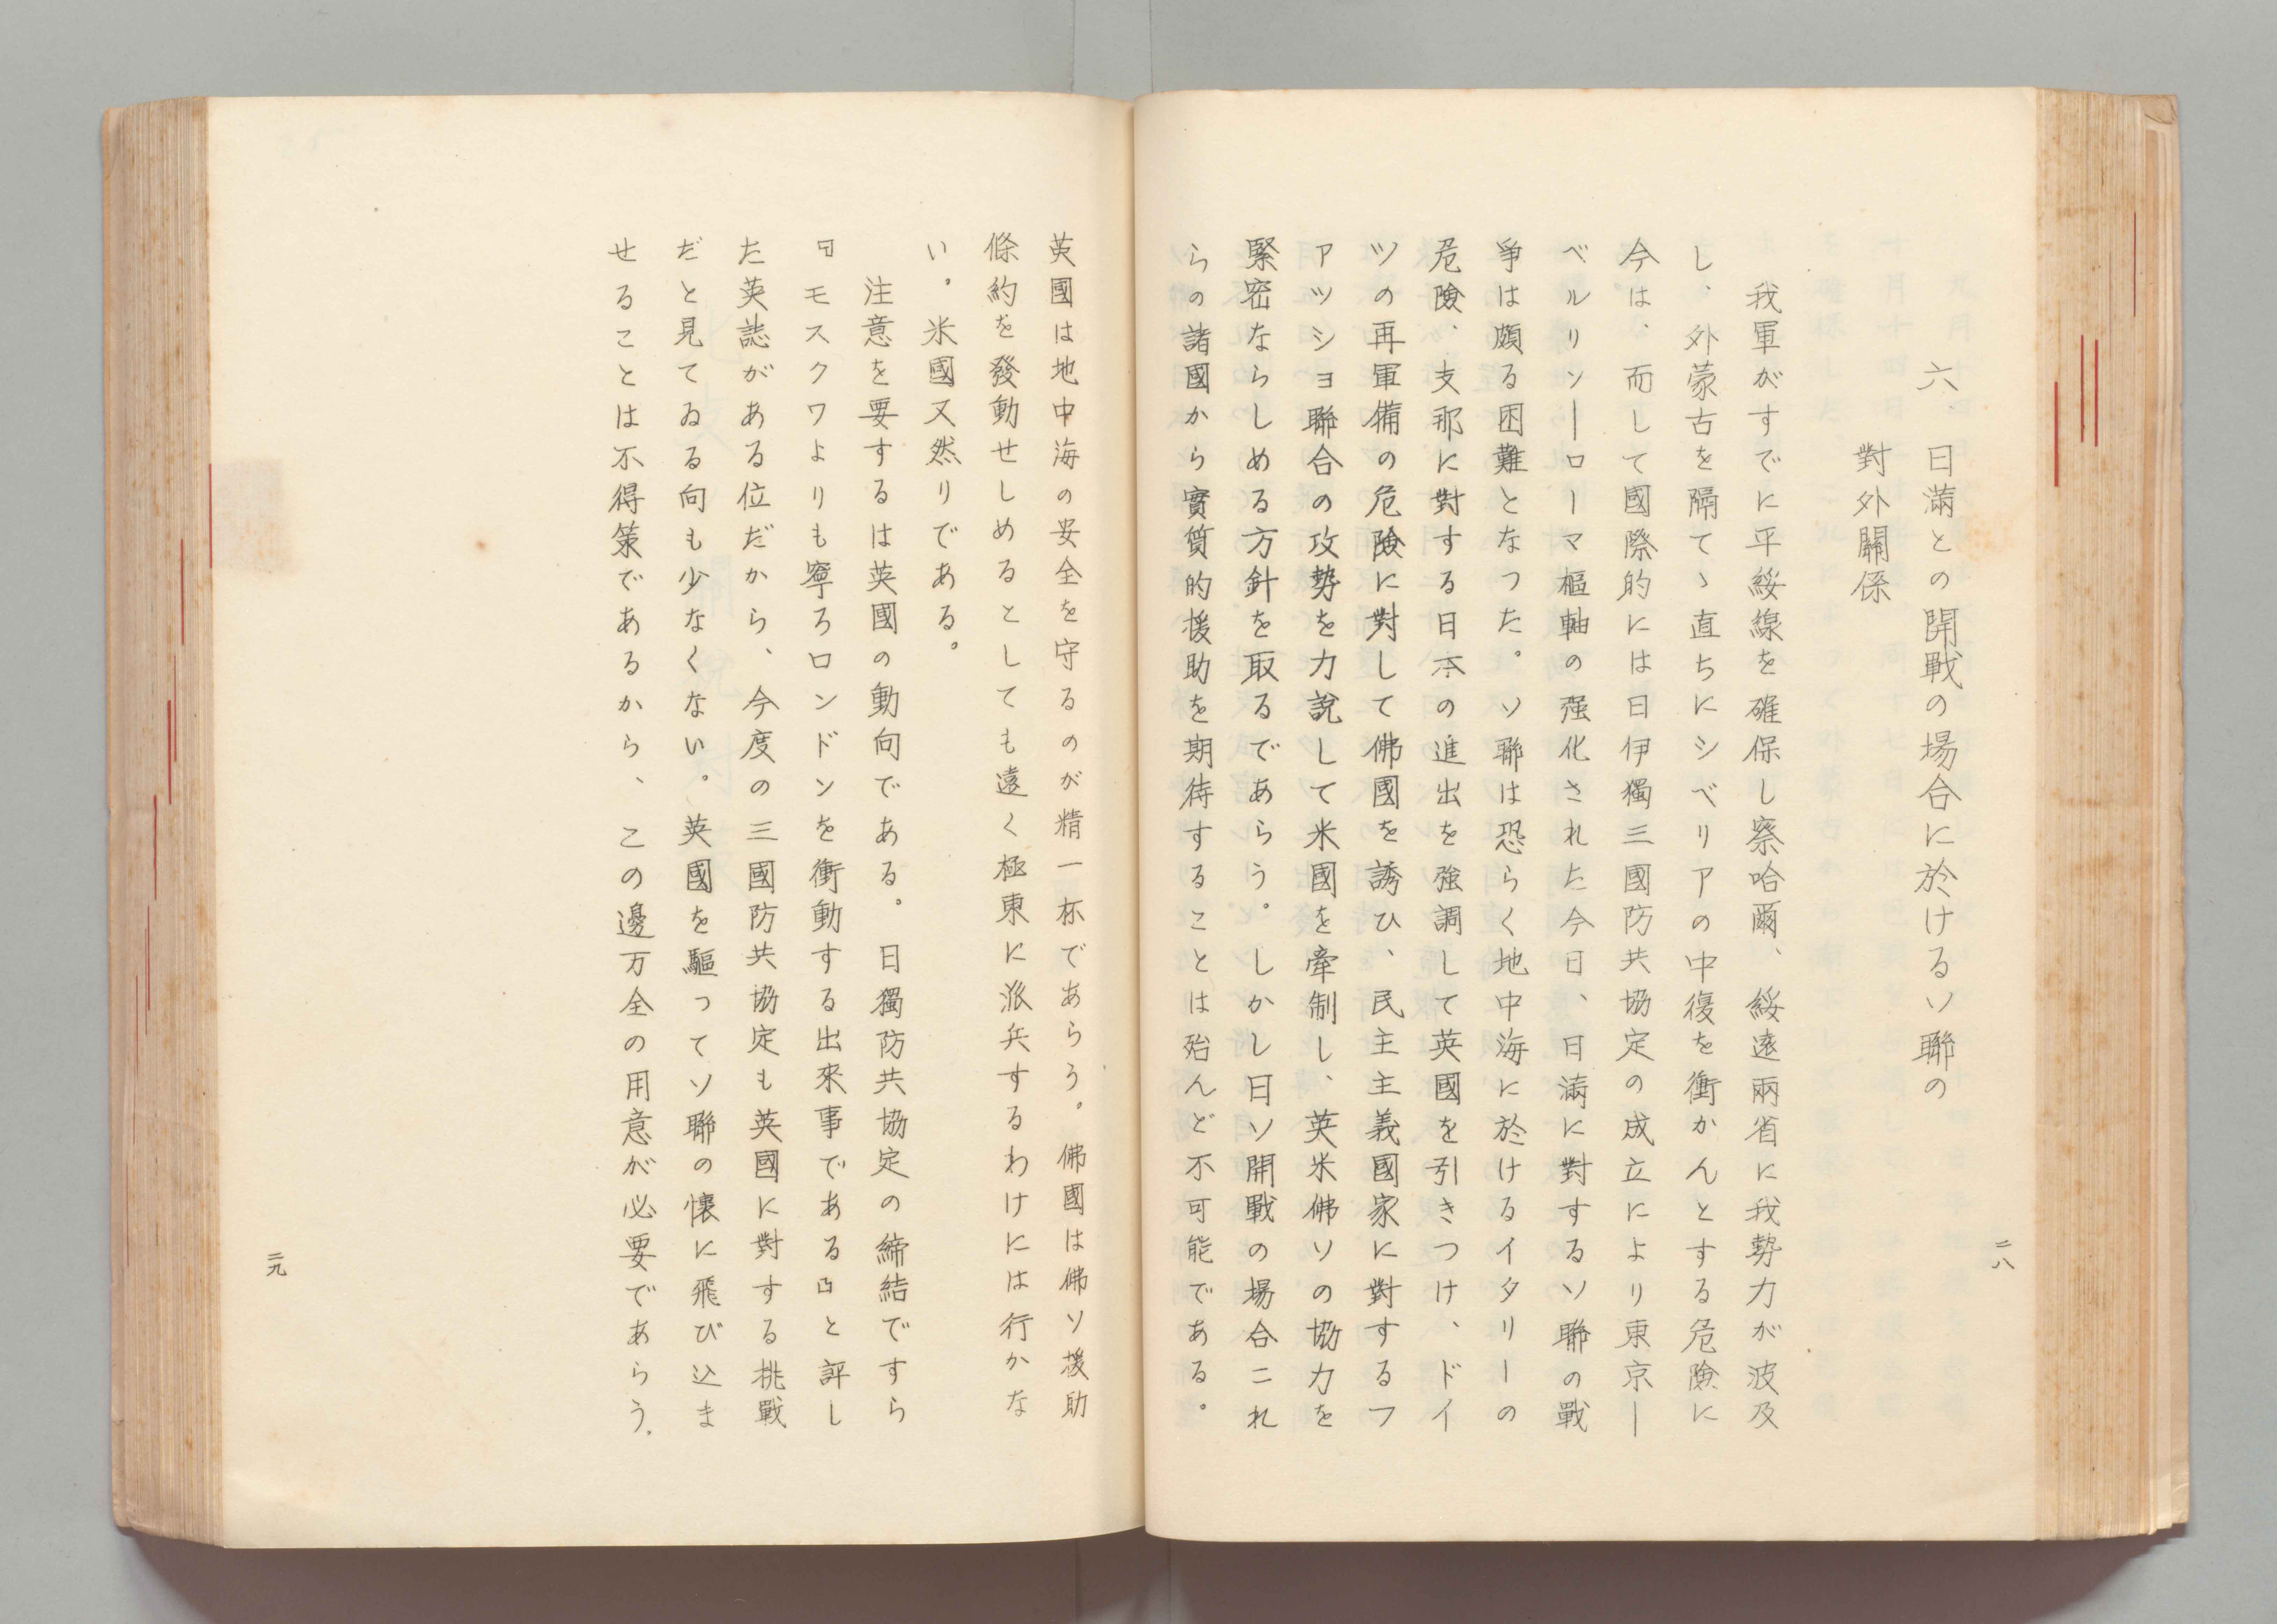 六、日滿との開戰の場合に於けるソ聯の
對外關係
我軍がすでに平綏線を確保し察哈爾、綏遠兩省に我勢力が波及
し、外蒙古を隔てゝ直ちにシベリアの中復を衝かんとする危險に
今は、而して國際的には日伊獨三國防共協定の成立により東京ー
ベルリンーローマ樞軸の强化された今日、日滿に對するソ聯の戰
爭は頗る困難となつた。ソ聯は恐らく地中海に於けるイタリーの
危險、支那に對する日本の進出を強調して英國を引きつけ、ドイ
ツの再軍備の危險に對して佛國を誘ひ、民主主義國家に對するフ
アツシヨ聯合の攻勢を力說して米國を牽制し、英米佛ソの協力を
緊密ならしめる方針を取るであらう。しかし日ソ開戰の場合これ
らの諸國から實質的援助を期待することは殆んど不可能である。
二八
英國は地中海の安全を守るのが精一杯であらう。佛國は佛ソ援助
條約を發動せしめるとしても遠く極東に派兵するわけには行かな
い。米國又然りである。
注意を要するは英國の動向である。日獨防共協定の締結ですら
『モスクワよりも寧ろロンドンを衝動する出來事である』と評し
た英誌がある位だから、今度の三國防共協定も英國に對する挑戰
だと見てゐる向も少なくない。英國を驅つてソ聯の懷に飛び込ま
せることは不得策であるから、この邊万全の用意が必要であらう。
二九